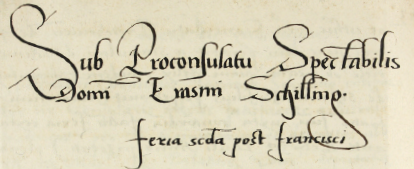 Sub Proconsulatu Spectabilis
Domi Erasmi Schilling.
feria scda post francisci